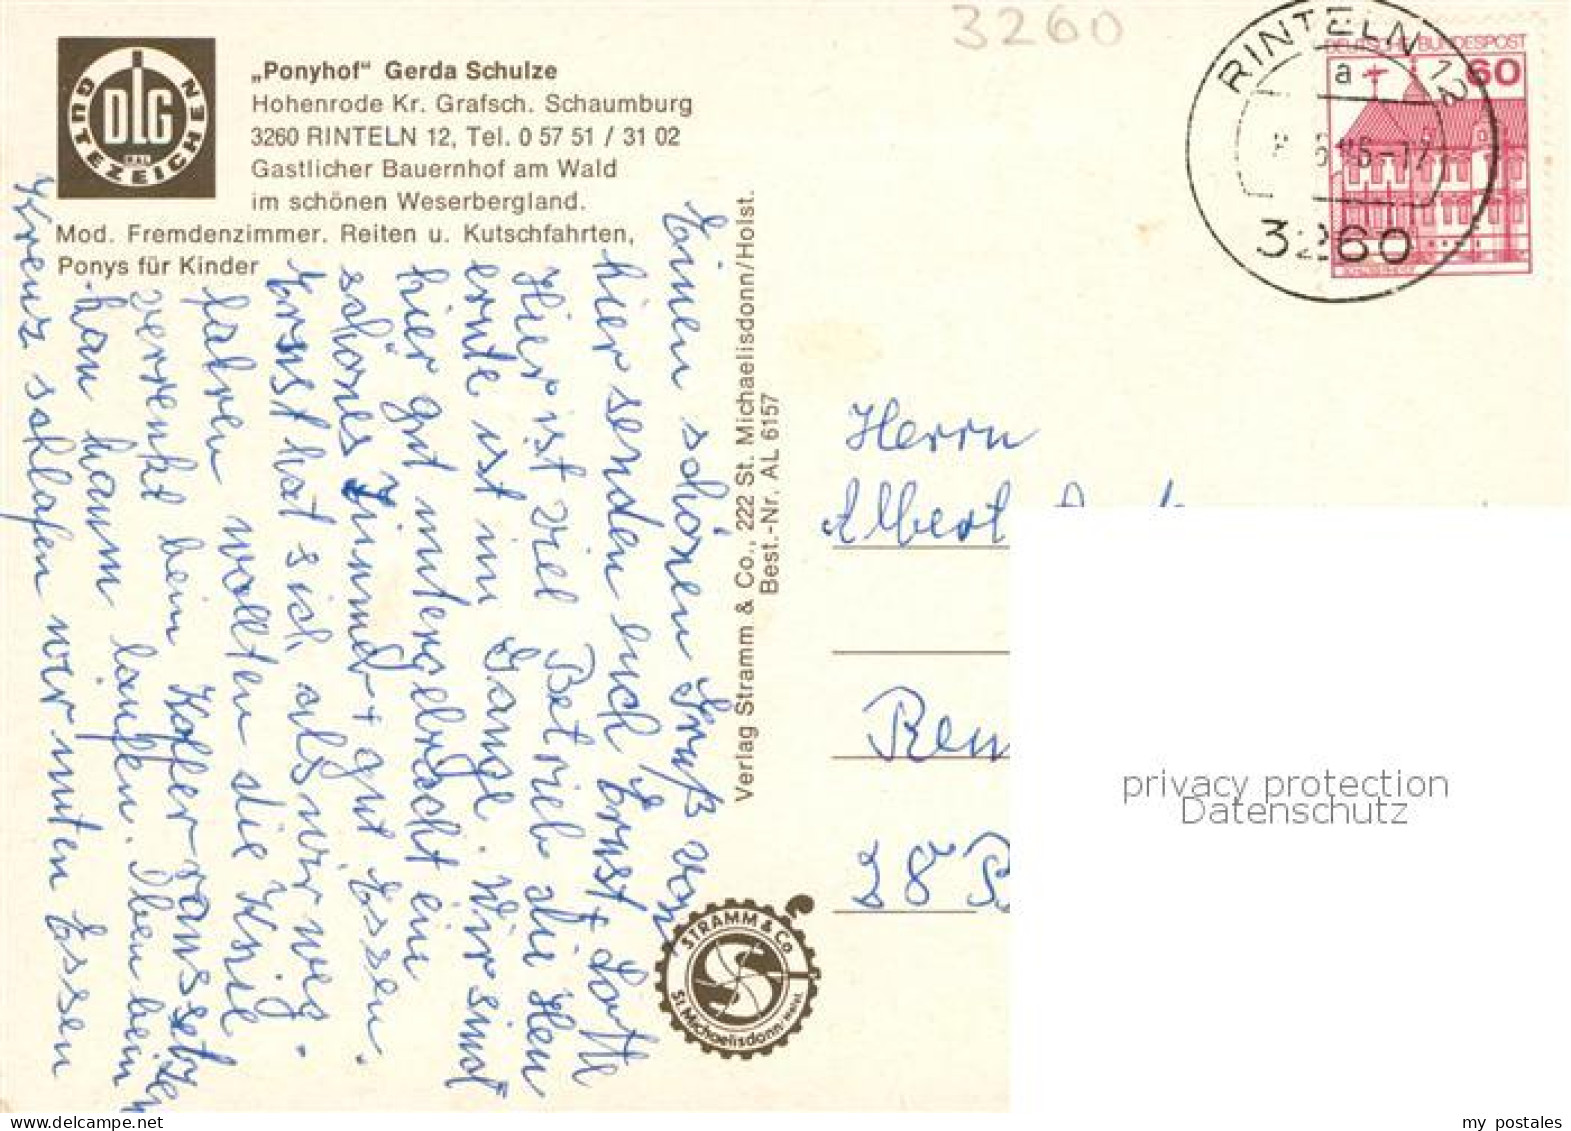 3260
DLG
GUTEZEICHEN
„Ponyhof“ Gerda Schulze
Hohenrode Kr. Grafsch. Schaumburg
3260 RINTELN 12, Tel. 0 57 51 / 31 02
Gastlicher Bauernhof am Wald
im schönen Weserbergland.
Mod. Fremdenzimmer. Reiten u. Kutschfahrten,
Ponys für Kinder
Einen schönen Gruß von
hier senden euch Ernst + Lotte
Hier ist viel Betrieb die Heu
ernte ist im Gange. Wir sind
hier gut untergebracht ein
schönes Zimmer + gut Essen.
Ernst hat sich als wir weg
fahren wollten die Knie
verrenkt beim Koffer raussetzen
kan kaum laufen. Oben beim
Kreuz schlafen wir unten Essen
Verlag Stramm & Co., 222 St. Michaelisdonn/Holst.
Best.-Nr. AL 6157
STRAMM & Co.
St. Michaelisdonn/Holst.
DEUTSCHE BUNDESPOST
60
RINTELN 12
a
3260
Herrn
Albert
28
privacy protection
Datenschutz
my_postales